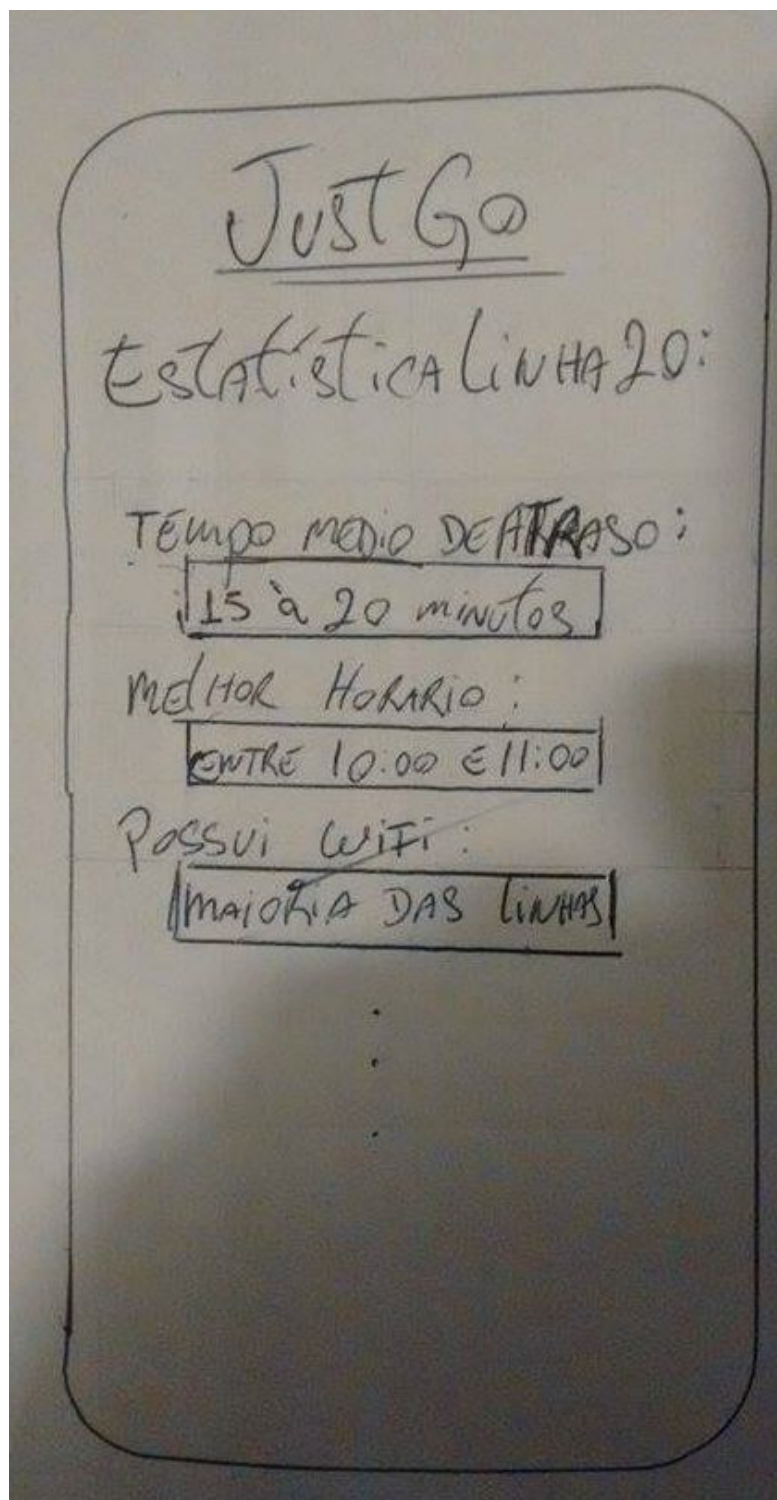 Just Go
Estatística Linha 20:
Tempo medio de atraso:
15 à 20 minutos
Melhor Horario:
entre 10:00 e 11:00
Possui WiFi:
Maioria das linhas